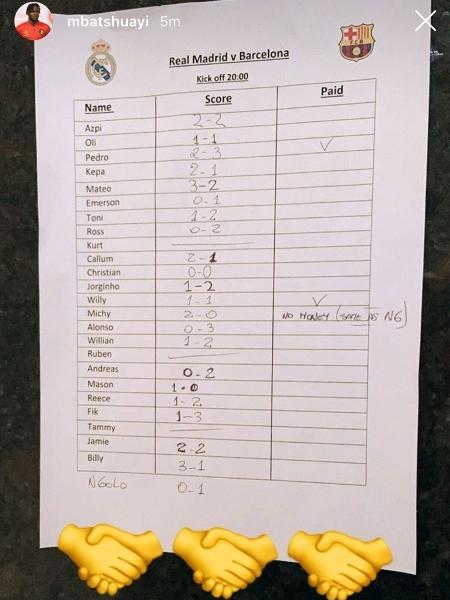 mbatshuayi 5m
Real Madrid v Barcelona
Kick off 20:00
Name Score Paid
Azpi 2-2
Oli 1-1 ✓
Pedro 2-3
Kepa 2-1
Mateo 3-2
Emerson 0-1
Toni 1-2
Ross 0-2
Kurt
Callum 2-1
Christian 0-0
Jorginho 1-2
Willy 1-1 ✓
Michy 2-0 NO MONEY (SAME AS NG)
Alonso 0-3
Willian 1-2
Ruben
Andreas 0-2
Mason 1-0
Reece 1-2
Fik 1-3
Tammy
Jamie 2-2
Billy 3-1
NGOLO 0-1